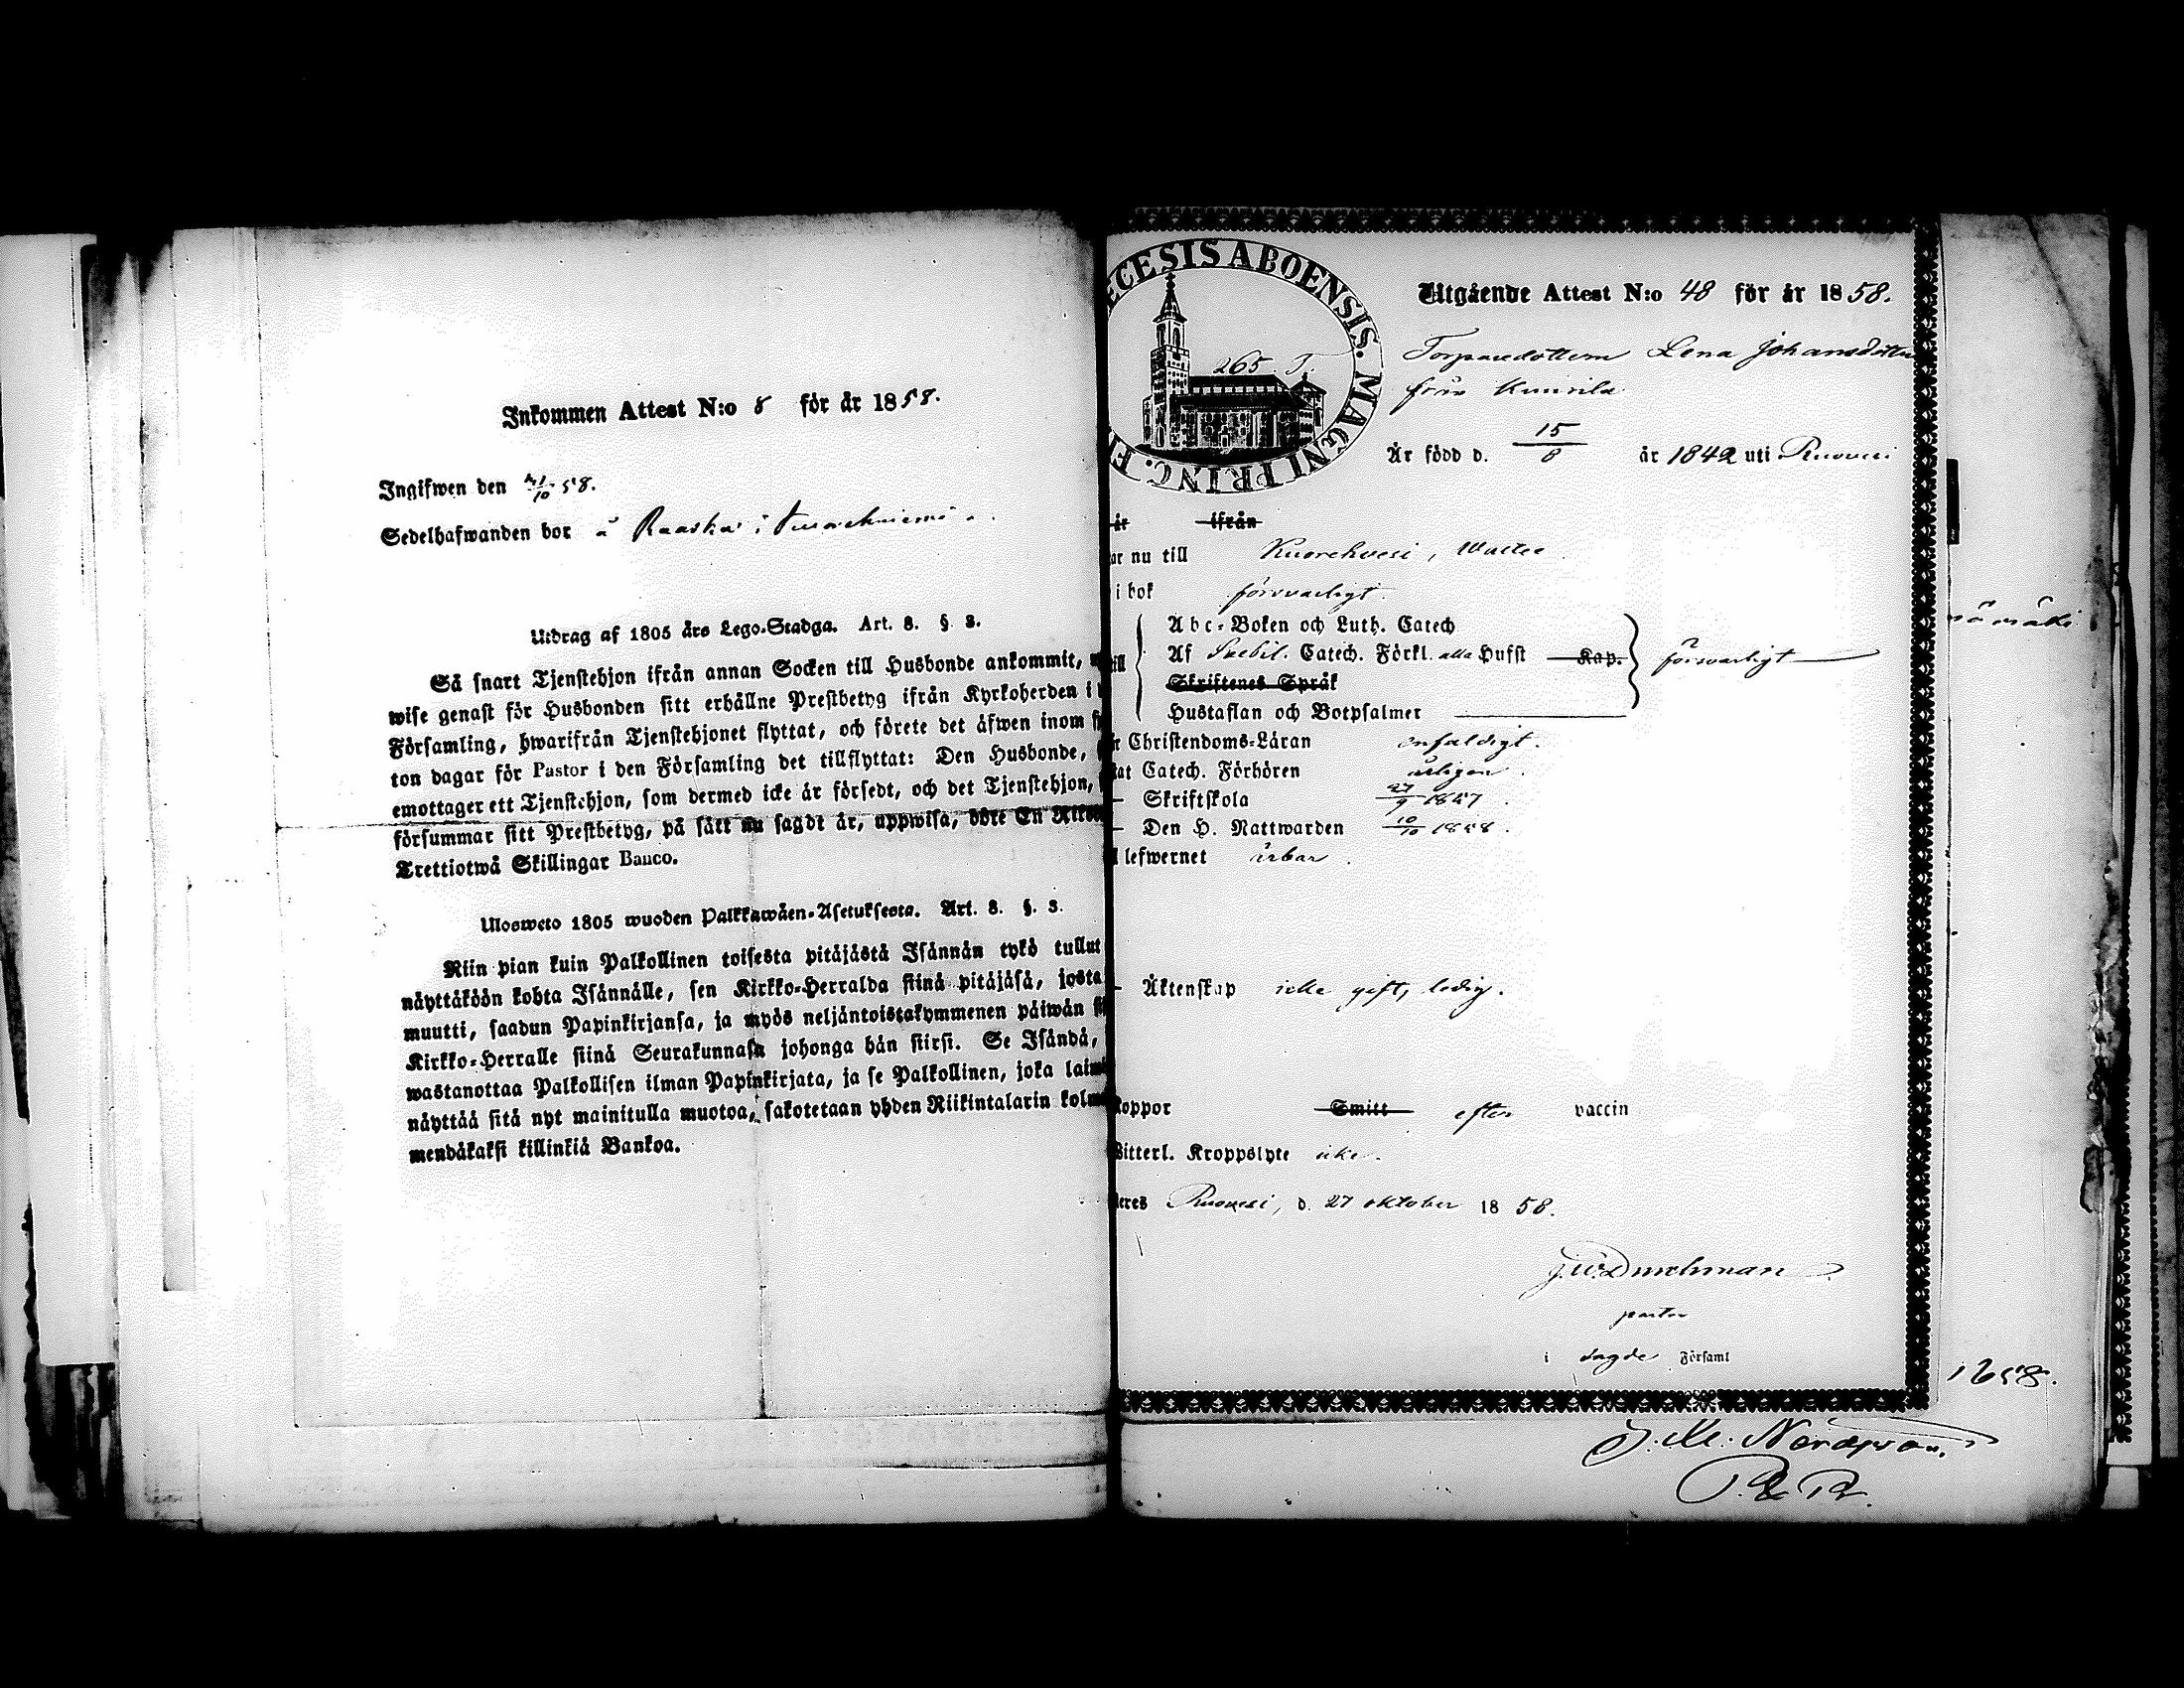 Inkommen Attest N:o 8 för år 1858.
Ingifwen den 31/10 58.
Sedelhafwanden bor å Raaska i
Utdrag af 1805 års Lego-Stadga. Art. 8. §. 3.
Så snart Tjenstehjon ifrån annan Socken till Husbonde ankommit,
wise genast för Husbonden sitt erhållne Prestbetyg ifrån Kyrkoherden i
Församling, hwarifrån Tjenstehjonet flyttat, och förete det äfwen inom
ton dagar för Pastor i den Församling det tillflyttat: Den Husbonde,
emottager ett Tjenstehjon, som dermed icke är försedt, och det Tjenstehjon,
försummar sitt Prestbetyg, på sätt nu sagdt är, uppwisa, böte En
Trettiotwå Skillingar Banco.
Ulosweto 1805 wuoden Palkkawäen-Asetuksesta. Art. 8. §. 3.
Niin pian kuin Palkollinen toisesta pitäjästä Isännän tykö tullut
näyttäköön kohta Isännälle, sen Kirkko-Herralda siinä pitäjäsä, josta
muutti, saadun Papinkirjansa, ja myös neljäntoistakymmenen päiwän
Kirkko-Herralle siinä Seurakunnasa johonga hän siirsi. Se Isändä,
wastanottaa Palkollisen ilman Papinkirjata, ja se Palkollinen, joka
näyttää sitä nyt mainitulla muotoa, sakotetaan yhden Riikintalarin
mendäkaksi killinkiä Bankoa.
ECESIS ABOENSIS. MAGNI PRINC. F
265. T.
Utgående Attest N:o 48 för år 1858.
Torparedottern Lena Johansdotter
från Kuurila
Är född d. 15/8 år 1842 uti Ruovesi
år ifrån
nu till Kuorehvesi,
i bok försvarligt.
Abc-Boken och Luth. Catech
Af Svebil. Catech. Förkl. alla Hufst Kap. försvarligt
Skriftenes Språk
Hustaflan och Botpsalmer
Christendoms-Läran enfaldigt.
Catech. Förhören årligen.
Skriftskola 27/9 1857.
Den H. Nattwarden 10/10 1858.
lefwernet ärbar.
Äktenskap icke gift, ledig.
koppor Smitt efter vaccin
Witterl. Kroppslyte icke.
Ruovesi, d. 27 oktober 1858.
J. W. Durchman
pastor
i sagde Församl
1858.
P. & P.